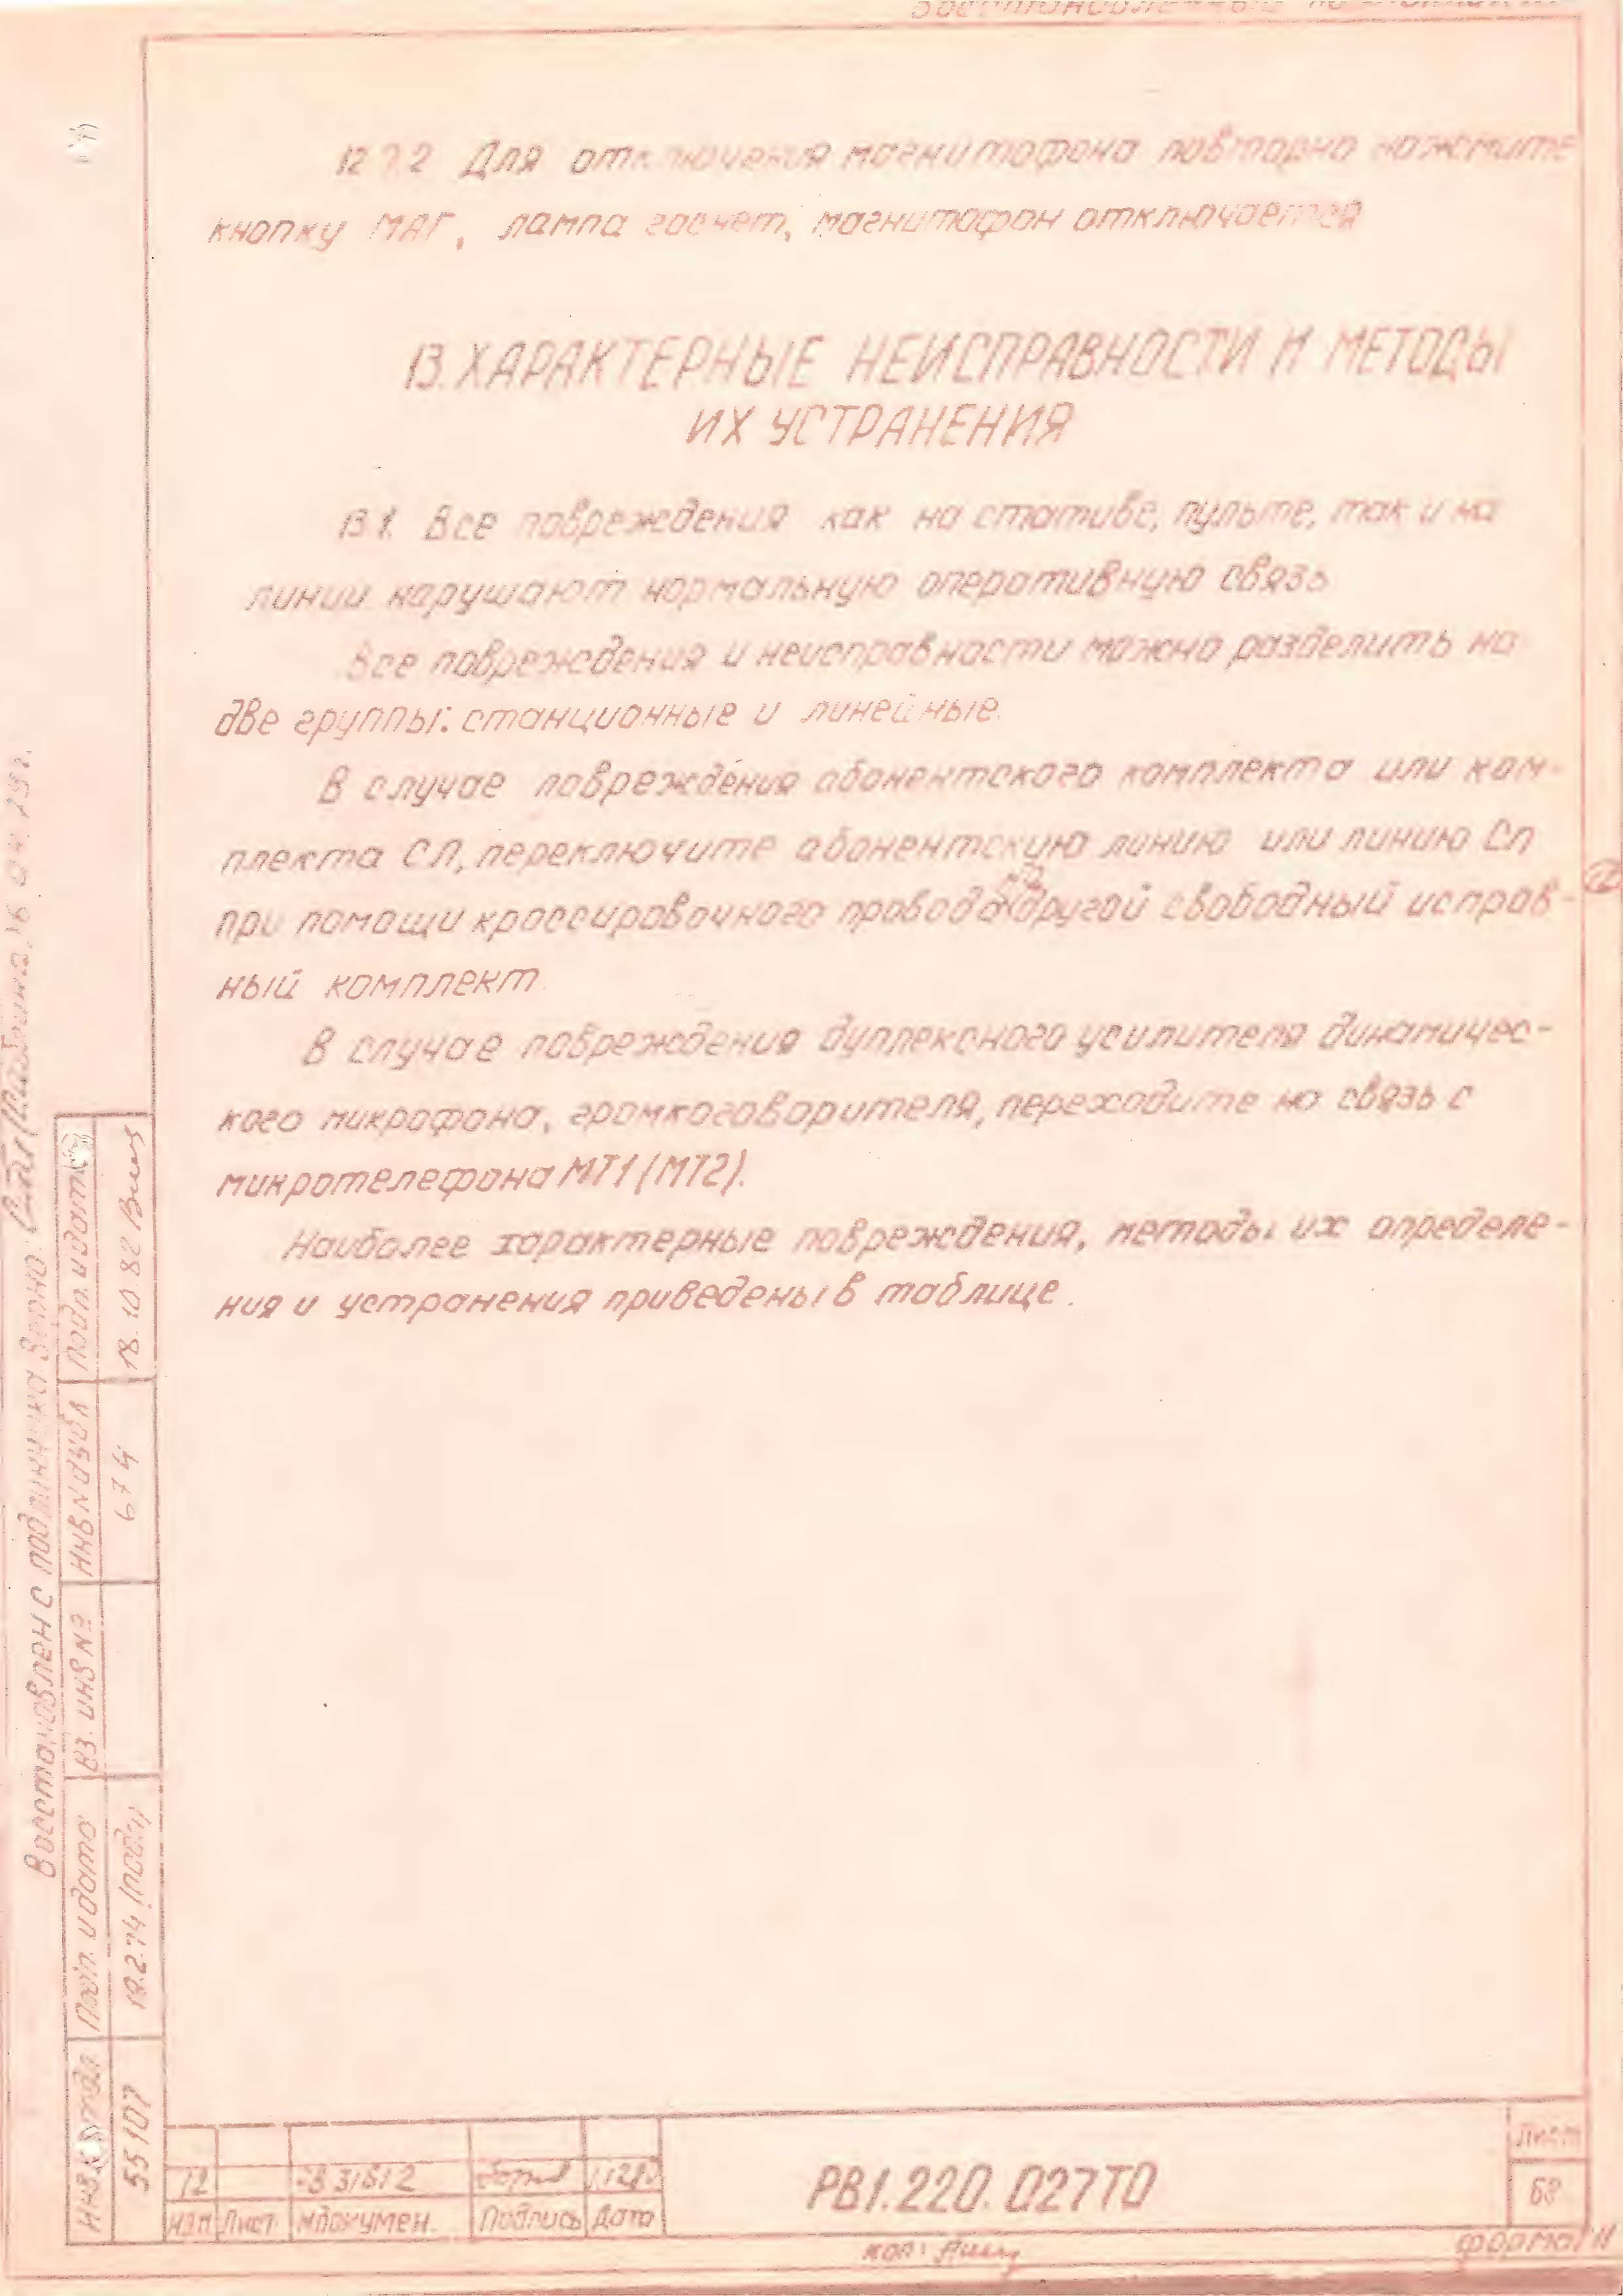 12.7.2 Для отключения магнитофона повторно нажмите
кнопку МАГ, лампа гаснет, магнитофон отключается
13. ХАРАКТЕРНЫЕ НЕИСПРАВНОСТИ И МЕТОДЫ
ИХ УСТРАНЕНИЯ
13.1. Все повреждения как на стативе, пульте, так и на
линии нарушают нормальную оперативную связь
Все повреждения и неисправности можно разделить на
две группы: станционные и линейные.
В случае повреждения абонентского комплекта или ком-
плекта СЛ, переключите абонентскую линию или линию СЛ
при помощи кроссировочного провода на другой свободный исправ-
ный комплект.
В случае повреждения дуплексного усилителя динамичес-
кого микрофона, громкоговорителя, переходите на связь с
микротелефона МТ1 (МТ2).
Наиболее характерные повреждения, методы их определе-
ния и устранения приведены в таблице.
Восстановлен с подлинника Верно:
Подп. и дата
18.10.82
Инв N дубл
674
Вз. инв №
Подп. и дата
19.2.74
Инв подл
55107
12
Изм Лист № докумен. Подпись Дата
РВ1.220.027ТО
Лист
68
коп:
формат 11